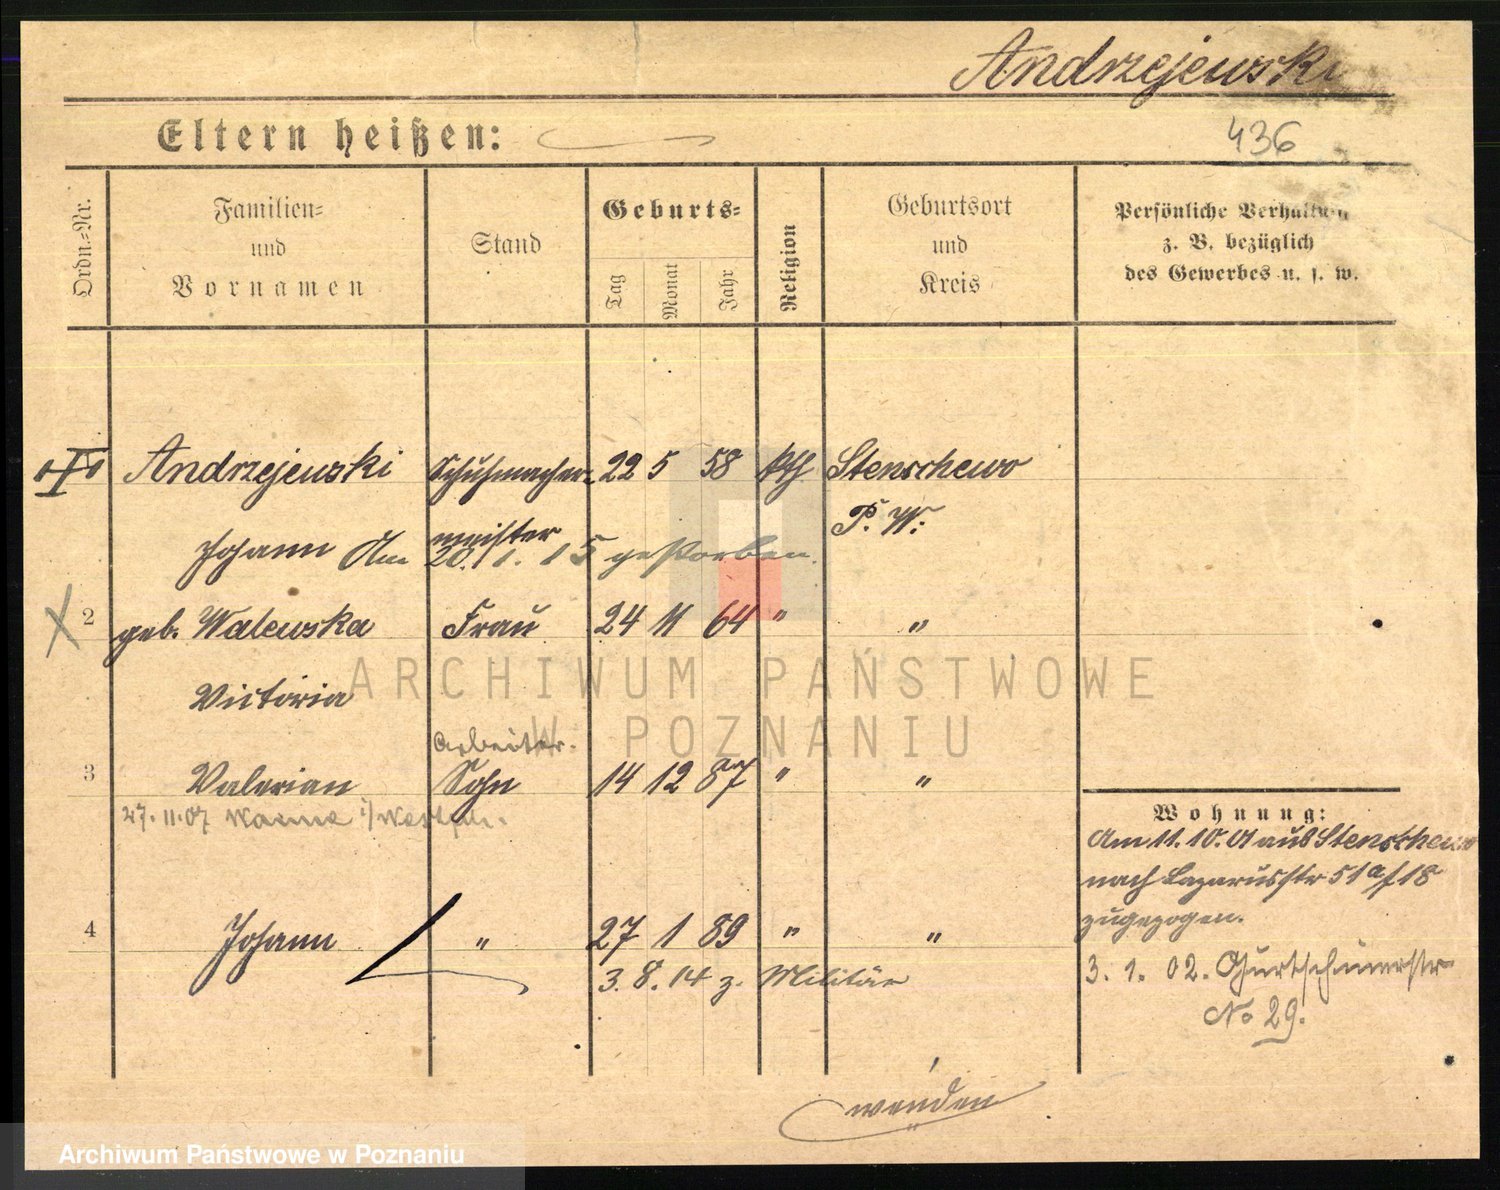 Andrzejewski
Eltern heißen:
436
Ordn.-Nr.
Familien-
und
Vornamen
Stand
Geburts-
Tag
Monat
Jahr
Religion
Geburtsort
und
Kreis
Persönliche Verhältn
z. B. bezüglich
des Gewerbes u. s. w.
I Andrzejewski Schuhmacher- 22 5 58 kth Stenschewo
meister P. W.
Johann Am 20. 1. 15 gestorben.
2 geb. Walewska Frau 24 11 64 " "
Victoria
Arbeiter.
3 Valerian Sohn 14 12 87 " "
27.11.07 i/Westfal.
4 Johann " 27 1 89 " "
3. 8. 14 z. Militär
Wohnung:
Am 11. 10. 01 aus Stenschewo
nach Lazarusstr 51a/18
zugezogen.
3. 1. 02. Gurtschinerstr
No 29.
wenden
ARCHIWUM PAŃSTWOWE
W POZNANIU
Archiwum Państwowe w Poznaniu